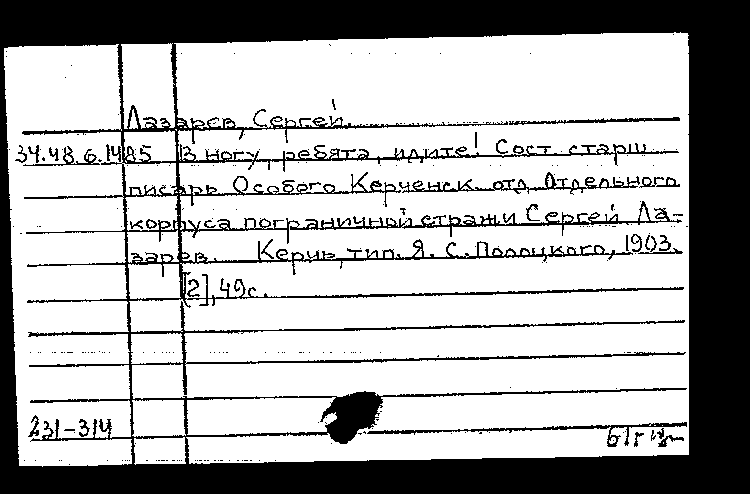 Лазарев, Сергей.
34.48.6.1485 В ногу, ребята, идите! Сост. старш.
писарь Особого Керченск. отд. Отдельного
корпуса пограничной стражи Сергей Ла-
зарев. Керчь, тип. Я. С. Полоцкого, 1903.
[2], 49с.
231-314
61г